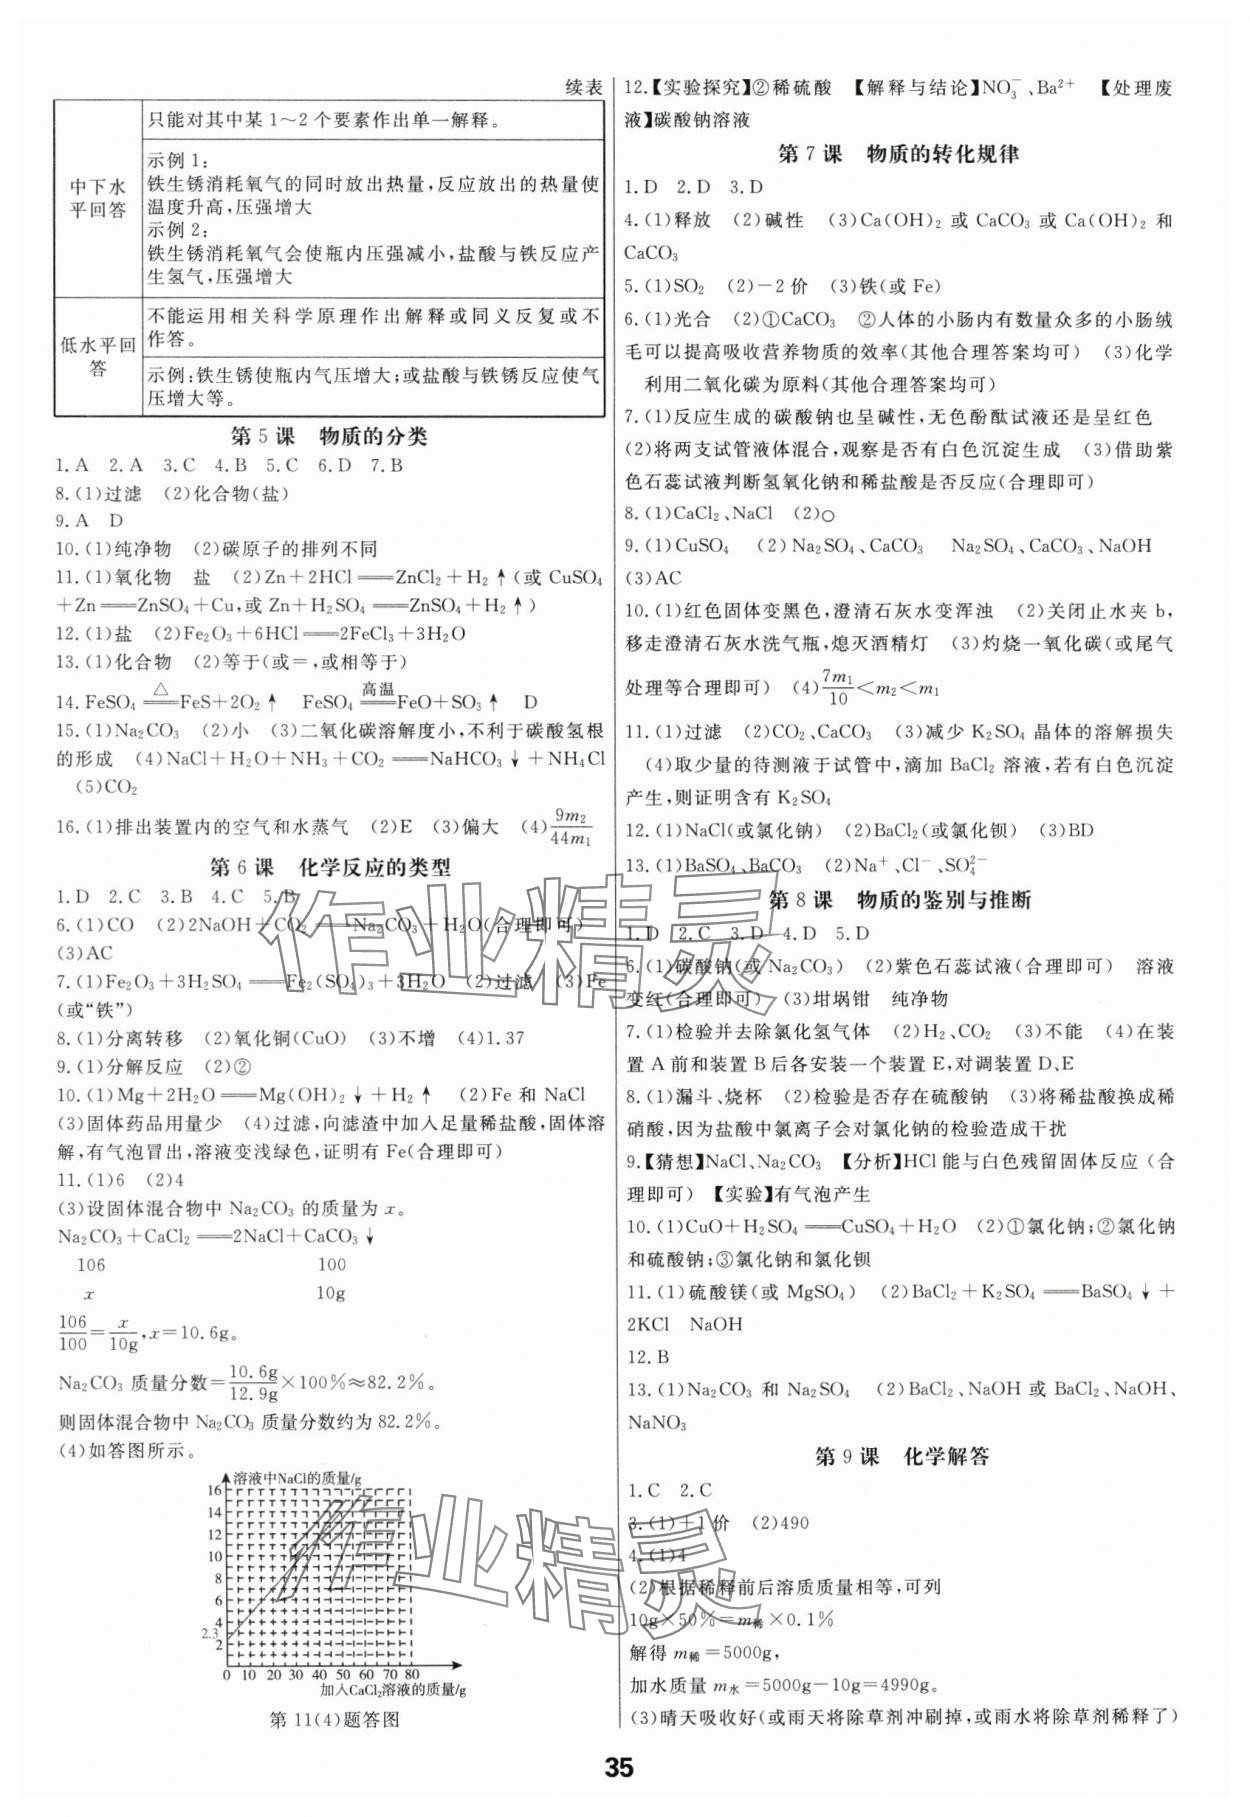 续表
中下水平回答
只能对其中某 1～2 个要素作出单一解释。
示例 1：
铁生锈消耗氧气的同时放出热量,反应放出的热量使
温度升高,压强增大
示例 2：
铁生锈消耗氧气会使瓶内压强减小,盐酸与铁反应产
生氢气,压强增大
低水平回答
不能运用相关科学原理作出解释或同义反复或不
作答。
示例:铁生锈使瓶内气压增大;或盐酸与铁锈反应使气
压增大等。
第 5 课　物质的分类
1. A　2. A　3. C　4. B　5. C　6. D　7. B
8. (1)过滤　(2)化合物(盐)
9. A　D
10. (1)纯净物　(2)碳原子的排列不同
11. (1)氧化物　盐　(2)Zn+2HCl══ZnCl₂+H₂↑(或 CuSO₄
+Zn══ZnSO₄+Cu,或 Zn+H₂SO₄══ZnSO₄+H₂↑)
12. (1)盐　(2)Fe₂O₃+6HCl══2FeCl₃+3H₂O
13. (1)化合物　(2)等于(或=,或相等于)
14. FeSO₄ ══△══ FeS+2O₂↑　FeSO₄ ══高温══ FeO+SO₃↑　D
15. (1)Na₂CO₃　(2)小　(3)二氧化碳溶解度小,不利于碳酸氢根
的形成　(4)NaCl+H₂O+NH₃+CO₂══NaHCO₃↓+NH₄Cl
(5)CO₂
16. (1)排出装置内的空气和水蒸气　(2)E　(3)偏大　(4)9m₂/44m₁
第 6 课　化学反应的类型
1. D　2. C　3. B　4. C　5. B
6. (1)CO　(2)2NaOH+CO₂══Na₂CO₃+H₂O(合理即可)
(3)AC
7. (1)Fe₂O₃+3H₂SO₄══Fe₂(SO₄)₃+3H₂O　(2)过滤　(3)Fe
(或“铁”)
8. (1)分离转移　(2)氧化铜(CuO)　(3)不增　(4)1.37
9. (1)分解反应　(2)②
10. (1)Mg+2H₂O══Mg(OH)₂↓+H₂↑　(2)Fe 和 NaCl
(3)固体药品用量少　(4)过滤,向滤渣中加入足量稀盐酸,固体溶
解,有气泡冒出,溶液变浅绿色,证明有 Fe(合理即可)
11. (1)6　(2)4
(3)设固体混合物中 Na₂CO₃ 的质量为 x。
Na₂CO₃+CaCl₂══2NaCl+CaCO₃↓
106　100
x　10g
106/100=x/10g,x=10.6g。
Na₂CO₃ 质量分数=10.6g/12.9g×100%≈82.2%。
则固体混合物中 Na₂CO₃ 质量分数约为 82.2%。
(4)如答图所示。
溶液中NaCl的质量/g
16
14
12
10
8
6
4
2.3
2
0 10 20 30 40 50 60 70 80
加入CaCl₂溶液的质量/g
第 11(4)题答图
12.【实验探究】②稀硫酸　【解释与结论】NO₃⁻、Ba²⁺　【处理废
液】碳酸钠溶液
第 7 课　物质的转化规律
1. D　2. D　3. D
4. (1)释放　(2)碱性　(3)Ca(OH)₂ 或 CaCO₃ 或 Ca(OH)₂ 和
CaCO₃
5. (1)SO₂　(2)−2 价　(3)铁(或 Fe)
6. (1)光合　(2)①CaCO₃　②人体的小肠内有数量众多的小肠绒
毛可以提高吸收营养物质的效率(其他合理答案均可)　(3)化学
利用二氧化碳为原料(其他合理答案均可)
7. (1)反应生成的碳酸钠也呈碱性,无色酚酞试液还是呈红色
(2)将两支试管液体混合,观察是否有白色沉淀生成　(3)借助紫
色石蕊试液判断氢氧化钠和稀盐酸是否反应(合理即可)
8. (1)CaCl₂、NaCl　(2)○
9. (1)CuSO₄　(2)Na₂SO₄、CaCO₃　Na₂SO₄、CaCO₃、NaOH
(3)AC
10. (1)红色固体变黑色,澄清石灰水变浑浊　(2)关闭止水夹 b,
移走澄清石灰水洗气瓶,熄灭酒精灯　(3)灼烧一氧化碳(或尾气
处理等合理即可)　(4)7m₁/10<m₂<m₁
11. (1)过滤　(2)CO₂、CaCO₃　(3)减少 K₂SO₄ 晶体的溶解损失
(4)取少量的待测液于试管中,滴加 BaCl₂ 溶液,若有白色沉淀
产生,则证明含有 K₂SO₄
12. (1)NaCl(或氯化钠)　(2)BaCl₂(或氯化钡)　(3)BD
13. (1)BaSO₄、BaCO₃　(2)Na⁺、Cl⁻、SO₄²⁻
第 8 课　物质的鉴别与推断
1. D　2. C　3. D　4. D　5. D
6. (1)碳酸钠(或 Na₂CO₃)　(2)紫色石蕊试液(合理即可)　溶液
变红(合理即可)　(3)坩埚钳　纯净物
7. (1)检验并去除氯化氢气体　(2)H₂、CO₂　(3)不能　(4)在装
置 A 前和装置 B 后各安装一个装置 E,对调装置 D、E
8. (1)漏斗、烧杯　(2)检验是否存在硫酸钠　(3)将稀盐酸换成稀
硝酸,因为盐酸中氯离子会对氯化钠的检验造成干扰
9.【猜想】NaCl、Na₂CO₃　【分析】HCl 能与白色残留固体反应(合
理即可)　【实验】有气泡产生
10. (1)CuO+H₂SO₄══CuSO₄+H₂O　(2)①氯化钠;②氯化钠
和硫酸钠;③氯化钠和氯化钡
11. (1)硫酸镁(或 MgSO₄)　(2)BaCl₂+K₂SO₄══BaSO₄↓+
2KCl　NaOH
12. B
13. (1)Na₂CO₃ 和 Na₂SO₄　(2)BaCl₂、NaOH 或 BaCl₂、NaOH、
NaNO₃
第 9 课　化学解答
1. C　2. C
3. (1)+1 价　(2)490
4. (1)4
(2)根据稀释前后溶质质量相等,可列
10g×50%=m稀×0.1%
解得 m稀=5000g,
加水质量 m水=5000g−10g=4990g。
(3)晴天吸收好(或雨天将除草剂冲刷掉,或雨水将除草剂稀释了)
作业精灵
作业精灵
35